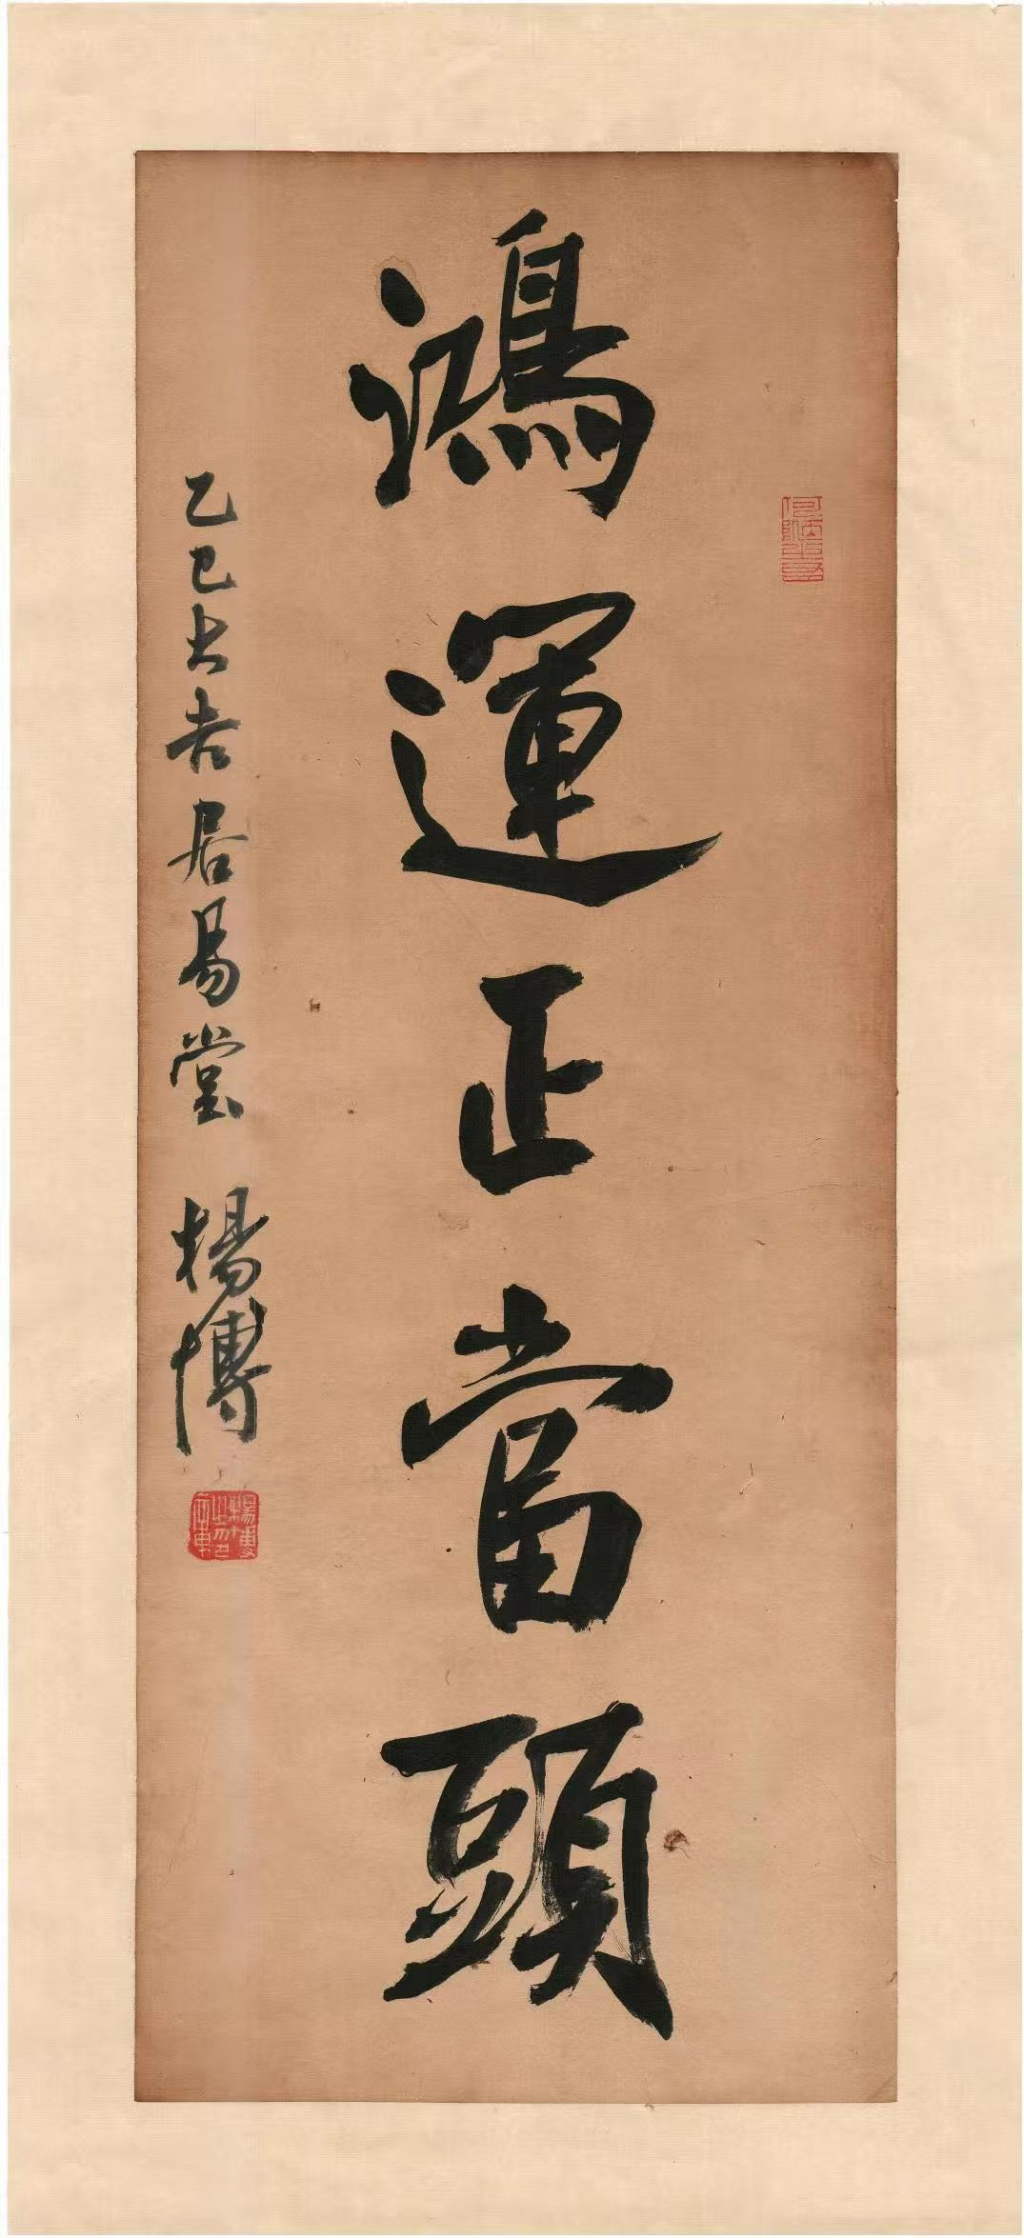 鴻運正當頭
乙巳大吉居易堂 楊博